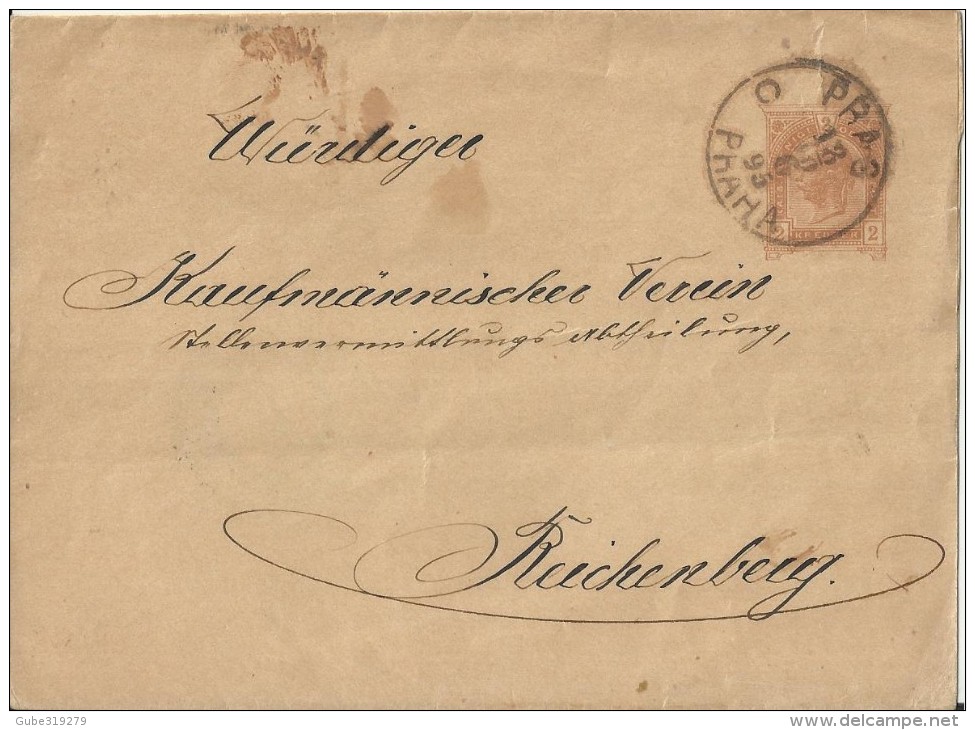 Würdiger
Kaufmännischer Verein
Stellenvermittlungs Abtheilung,
Reichenberg.
PRAG
PRAHA
95
2 KREUZER 2
Gube319279
www.delcampe.net